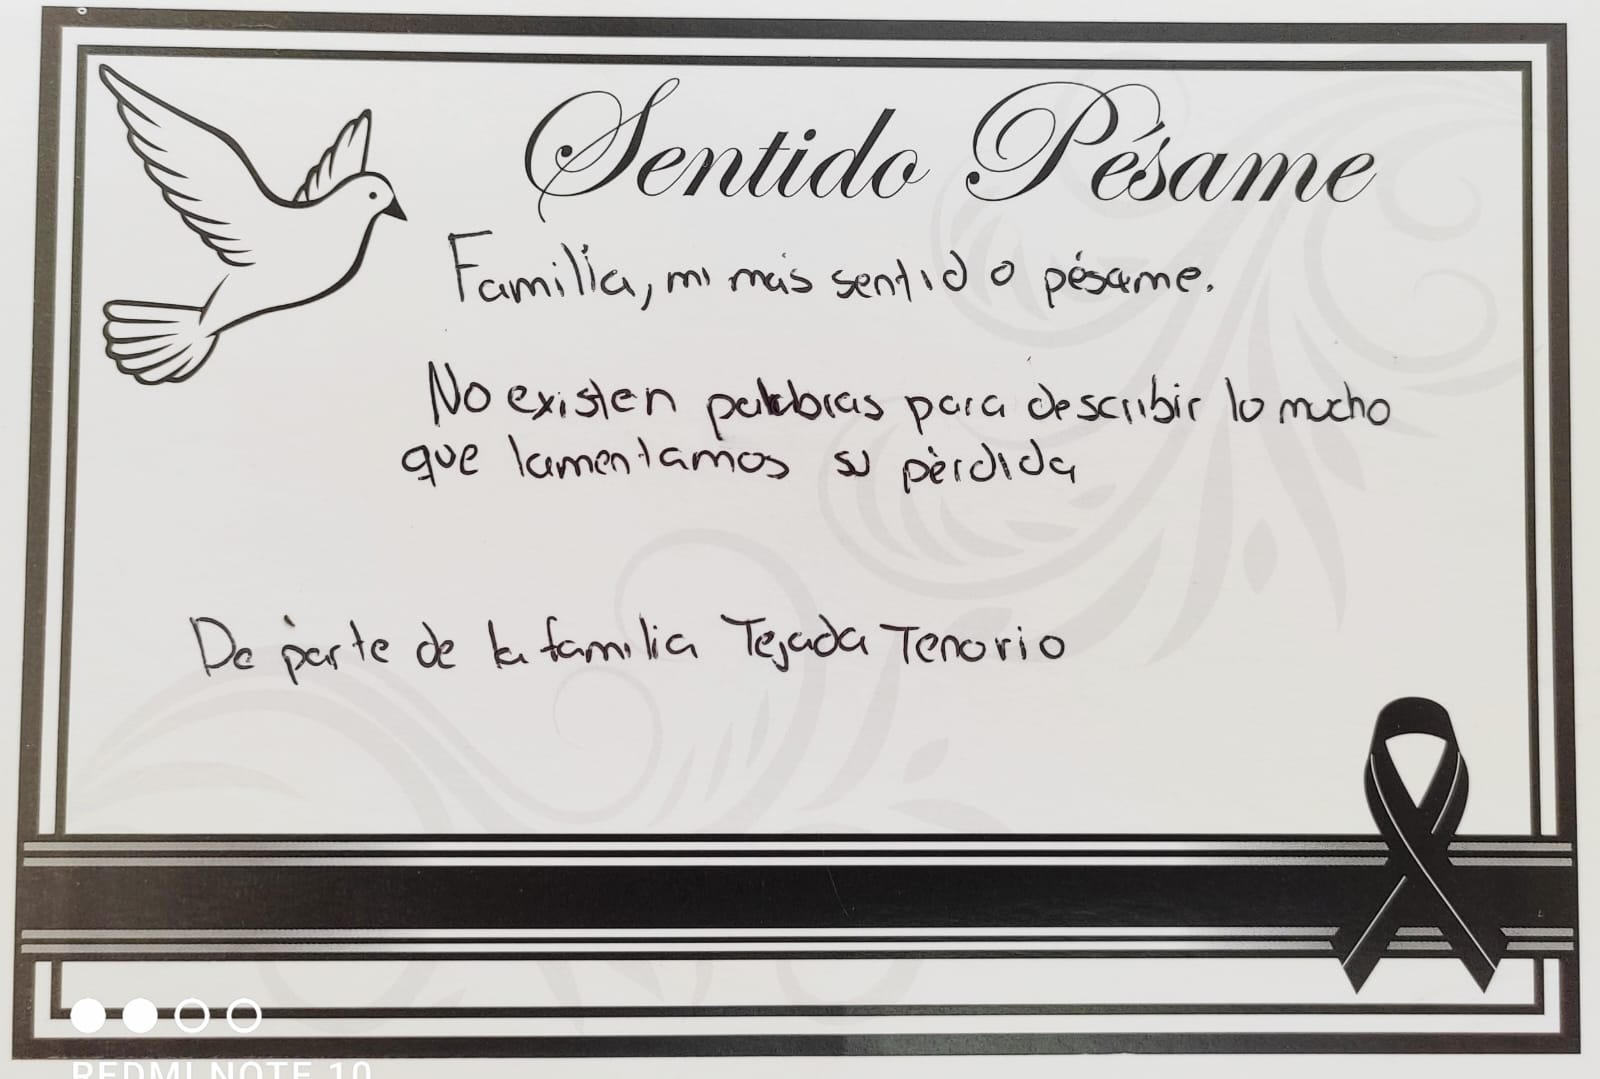 Sentido Pésame
Familia, mi más sentido pésame.
No existen palabras para describir lo mucho
que lamentamos su pèrdida
De parte de la familia Tejada Tenorio
REDMI NOTE 10